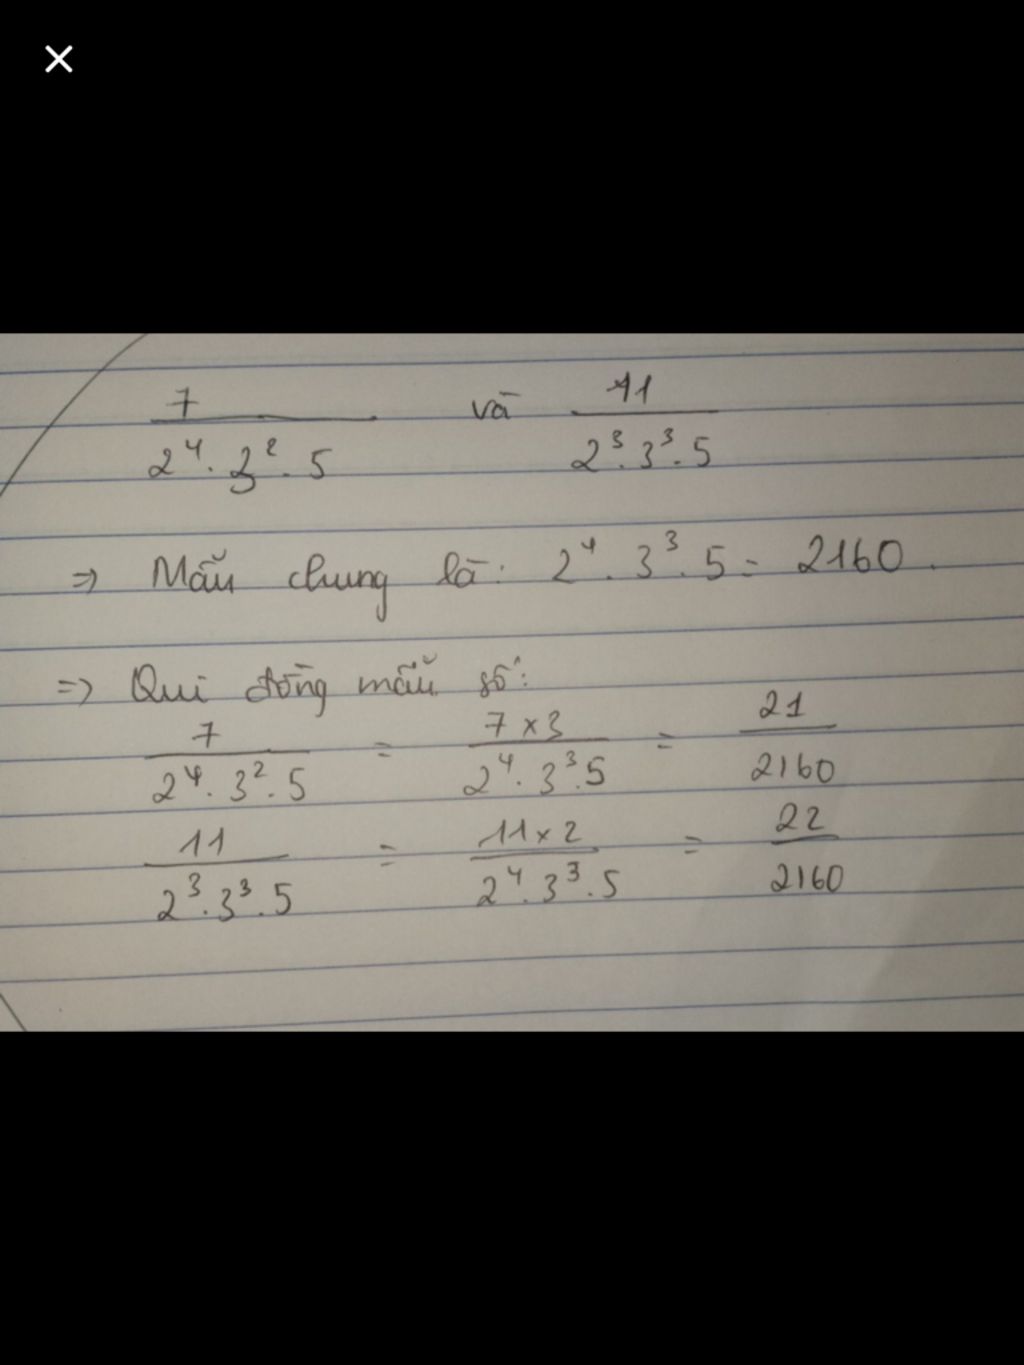 7/(2⁴ · 3² · 5) và 11/(2³ · 3³ · 5)
=> Mẫu chung là: 2⁴ · 3³ · 5 = 2160.
=> Qui đồng mẫu số:
7/(2⁴ · 3² · 5) = 7 x 3/(2⁴ · 3³ · 5) = 21/2160
11/(2³ · 3³ · 5) = 11 x 2/(2⁴ · 3³ · 5) = 22/2160